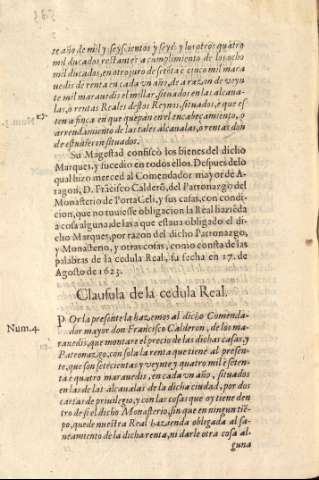 te año de mil y seyscientos y seys y los otros quatro
mil ducados restantes a cumplimiento de los ocho
mil ducados, en otro juro de setenta e cinco mil mara
uedis de renta en cada vn año, de a razon de veyn
te mil marauedis el millar, situados en las alcaua-
las, o rentas Reales destos Reynos, situados, e que es
ten o finca en que quepan en el encabeçamiento, o
arrendamiento de las tales alcaualas, o rentas don
de estuuieren situados.
Su Magestad confiscò los bienes del dicho
Marques, y sucedio en todos ellos. Despues de lo
qual hizo merced al Comendador mayor de A-
ragon, D. Frãcisco Calderõ, del Patronazgo del
Monasterio de PortaCeli, y sus casas, con condi-
cion, que no tuuiesse obligacion la Real haziẽda
a cosa alguna de las a que estaua obligado el di-
cho Marques, por razon del dicho Patronazgo,
y Monasterio, y otras cosas, como consta de las
palabras de la cedula Real, su fecha en 17. de
Agosto de 1623.
Clausula de la cedula Real.
Num.4.
POr la presente la hazemos al dicho Comenda-
dor mayor don Francisco Calderon, de los ma-
rauedis, que montare el precio de las dichas casas, y
Patronazgo, con sola la renta que tiene al presen-
te, que son setecientas y veynte y quatro mil e seten-
ta e quatro marauedis, en cada vn año, situados
en las de las alcaualas de la dicha ciudad, por dos
cartas de priuilegio, y con las cosas que oy tiene den
tro de si el dicho Monasterio, sin que en ningun tiẽ-
po, quede nuestra Real hazienda obligada al sa-
neamiento de la dicha renta, ni darle otra cosa al-
guna